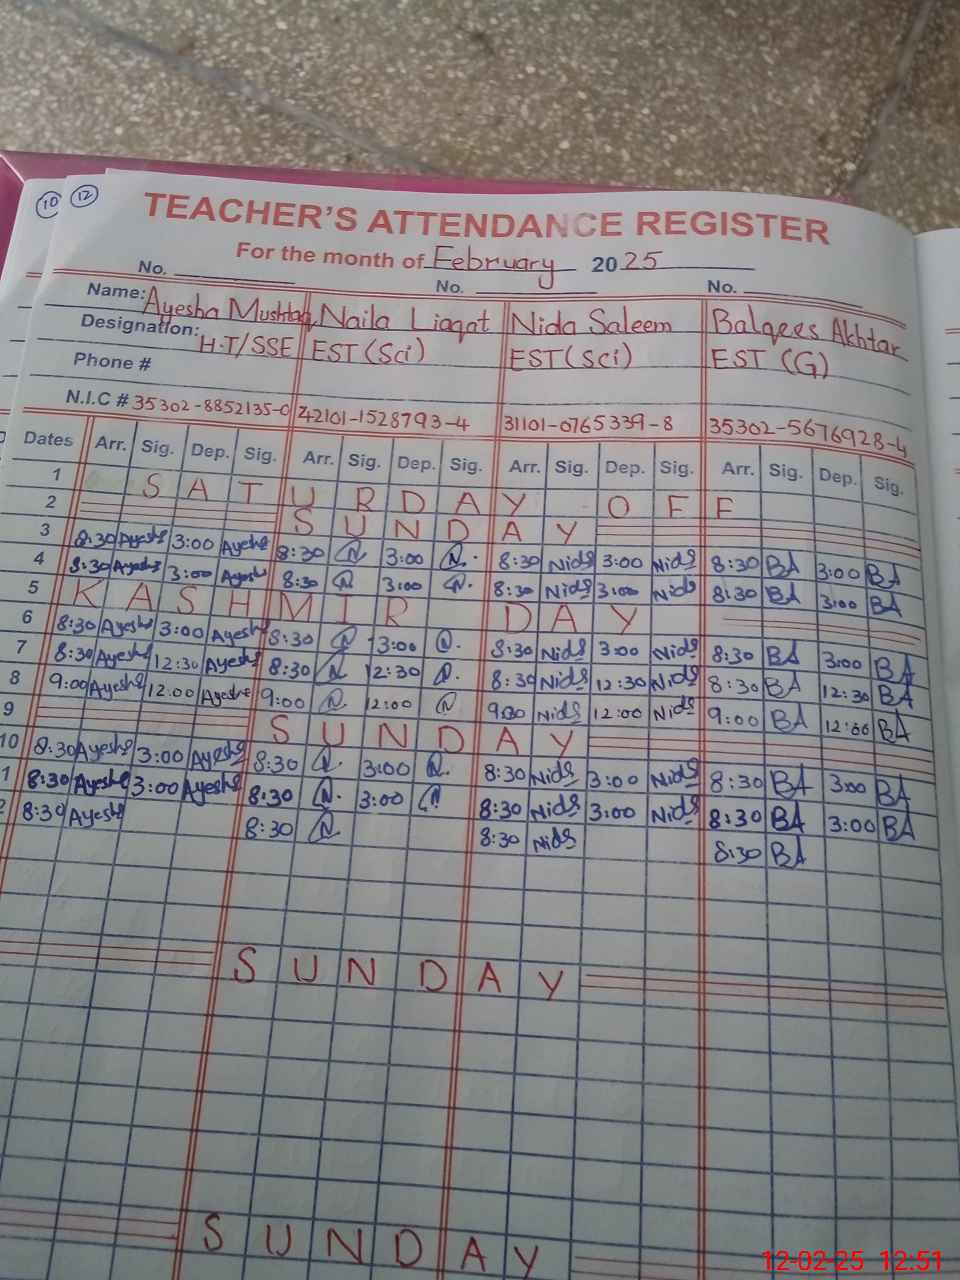 10 12
TEACHER'S ATTENDANCE REGISTER
For the month of February 2025
No. No. No.
Name: Ayesha Mushtaq Naila Liaqat Nida Saleem Balqees Akhtar
Designation: H.T/SSE EST (Sci) EST (Sci) EST (G)
Phone #
N.I.C # 35302-8852135-0 42101-1528793-4 31101-0765339-8 35302-5676928-4
Dates Arr. Sig. Dep. Sig. Arr. Sig. Dep. Sig. Arr. Sig. Dep. Sig. Arr. Sig. Dep. Sig.
1 SATURDAY OFF
2 SUNDAY
3 8:30 Ayesha 3:00 Ayesha 8:30 N 3:00 N. 8:30 Nida 3:00 Nida 8:30 BA 3:00 BA
4 8:30 Ayesha 3:00 Ayesha 8:30 N 3:00 N. 8:30 Nida 3:00 Nida 8:30 BA 3:00 BA
5 KASHMIR DAY
6 8:30 Ayesha 3:00 Ayesha 8:30 N 3:00 N. 8:30 Nida 3:00 Nida 8:30 BA 3:00 BA
7 8:30 Ayesha 12:30 Ayesha 8:30 N 12:30 N. 8:30 Nida 12:30 Nida 8:30 BA 12:30 BA
8 9:00 Ayesha 12:00 Ayesha 9:00 N 12:00 N Nida 12:00 Nida 9:00 BA 12:00 BA
9 SUNDAY
10 8:30 Ayesha 3:00 Ayesha 8:30 N 3:00 N. 8:30 Nida 3:00 Nida 8:30 BA 3:00 BA
1 8:30 Ayesha 3:00 Ayesha 8:30 N. 3:00 N 8:30 Nida 3:00 Nida 8:30 BA 3:00 BA
2 8:30 Ayesha 8:30 N 8:30 Nida 8:30 BA
SUNDAY
SUNDAY
12-02-25 12:51